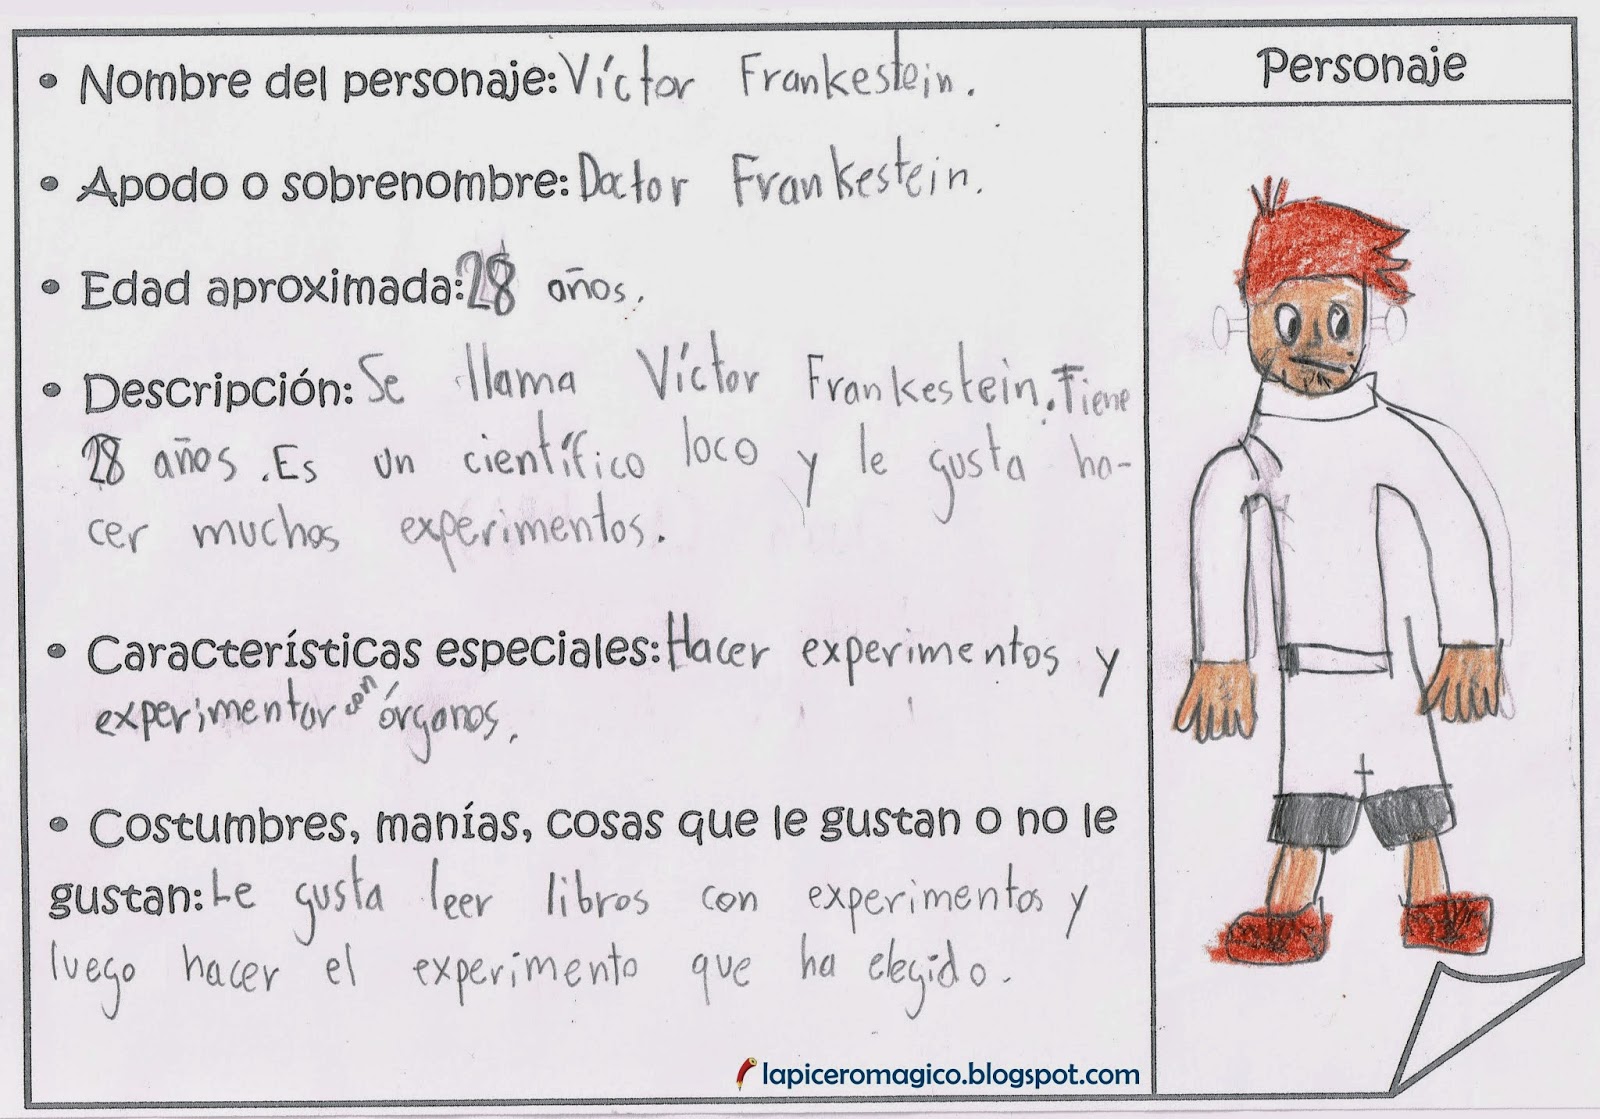 • Nombre del personaje: Víctor Frankestein.
Personaje
• Apodo o sobrenombre: Doctor Frankestein.
• Edad aproximada: 28 años.
• Descripción: Se llama Víctor Frankestein. Tiene
28 años. Es un científico loco y le gusta ha-
cer muchos experimentos.
• Características especiales: Hacer experimentos y
experimentar con órganos.
• Costumbres, manías, cosas que le gustan o no le
gustan: Le gusta leer libros con experimentos y
luego hacer el experimento que ha elegido.
lapiceromagico.blogspot.com